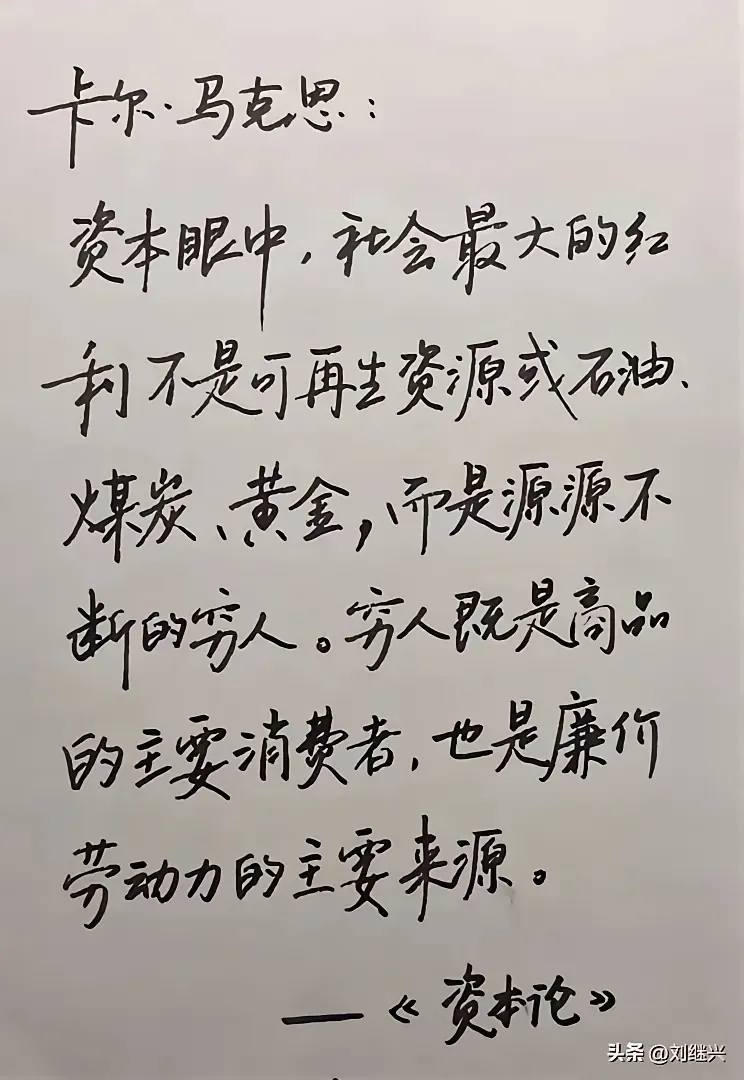 卡尔·马克思：
资本眼中，社会最大的红
利不是可再生资源或石油、
煤炭、黄金，而是源源不
断的穷人。穷人既是商品
的主要消费者，也是廉价
劳动力的主要来源。
——《资本论》
头条 @刘继兴